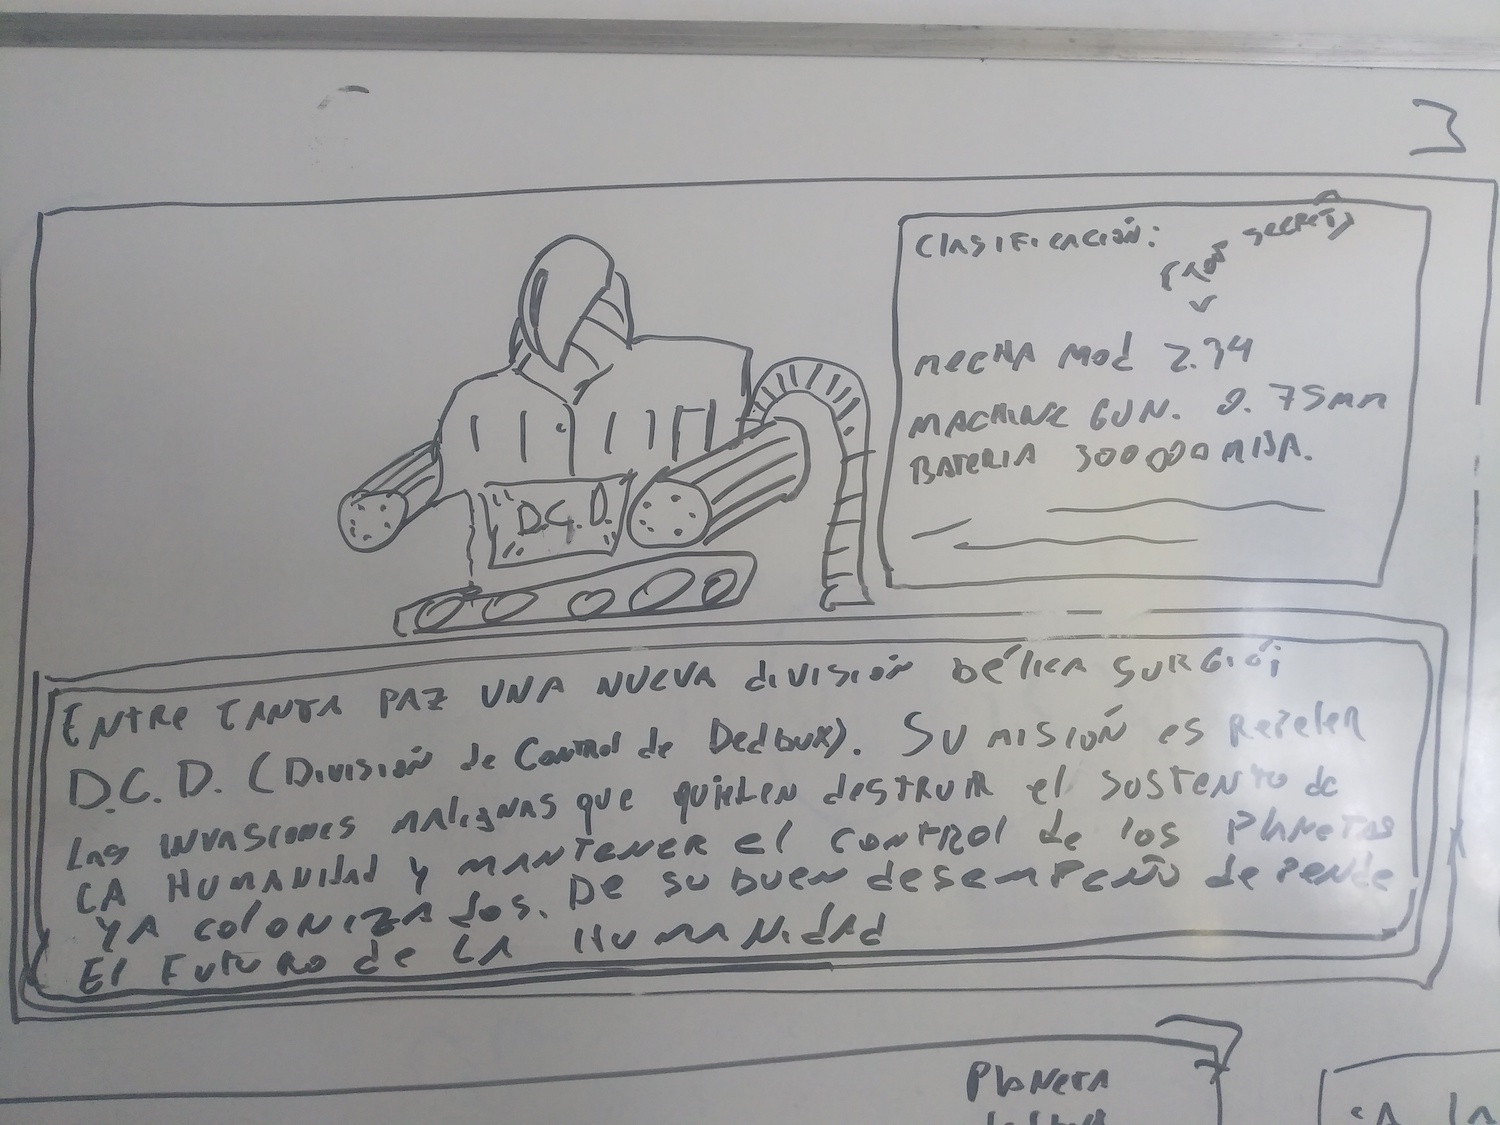 3
Clasificación:
secreto
MECHA Mod 2.34
MACHINE GUN. 0.75mm
BATERIA 300000
D.C.D.
ENTRE TANTA PAZ UNA NUEVA división BÉLICA SURGIÓ;
D.C.D. (División de Control de Dedbux). SU MISIÓN es Repeler
Las invasiones malignas que quieren destruir el sustento de
LA HUMANIdad y MANTENER el control de los PlaneTas
YA coloNIZAdos. De su buen desempeño depende
El Futuro de LA HUMANIdad
PlaNeta
LA